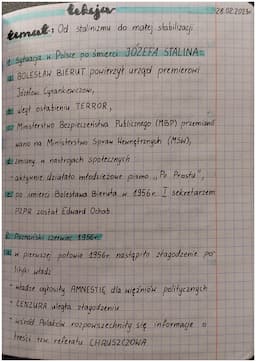 Lekcja
28.02.2023r
Temat: Od stalinizmu do małej stabilizacji
1. Sytuacja w Polsce po śmierci JÓZEFA STALINA
BOLESŁAW BIERUT powierzył urząd premierowi
Józefowi Cyrankiewiczowi,
uległ osłabieniu TERROR,
Ministerstwo Bezpieczeństwa Publicznego (MBP) przemiano
wano na Ministerstwo Spraw Wewnętrznych (MSW),
zmiany w nastrojach społecznych
- aktywnie działało młodzieżowe pismo "Po Prostu",
po śmierci Bolesława Bieruta w 1956r. I sekretarzem
PZPR został Edward Ochab.
2. Poznański czerwiec 1956r.
w pierwszej połowie 1956r. nastąpiło złagodzenie po
lityki władz
- władze ogłosiły AMNESTIĘ dla więźniów politycznych
- CENZURA uległa złagodzeniu
- wśród Polaków rozpowszechniły się informacje o
treści tzw. referatu CHRUSZCZOWA